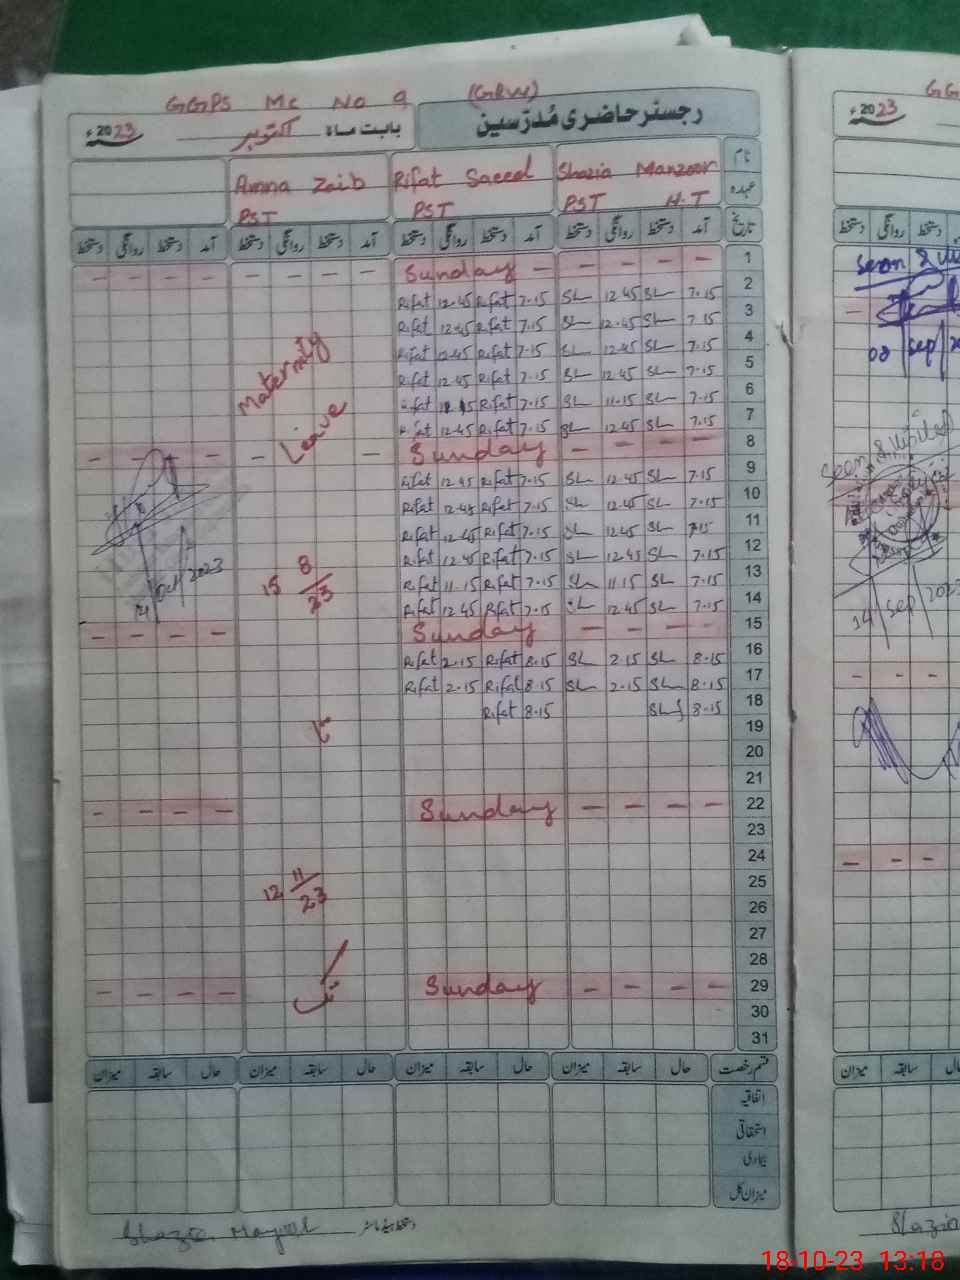 GGPS MC No 9 (GRW)
رجسٹر حاضری مُدرّسین
بابت ماہ اکتوبر 2023ء
نام Shazia Manzoor Rifat Saeed Amna Zaib
عہدہ PST H.T PST PST
تاریخ آمد دستخط روانگی دستخط آمد دستخط روانگی دستخط آمد دستخط روانگی دستخط آمد دستخط روانگی دستخط
1 - - - - - Sunday - - - - - - - -
2 7.15 SL 12.45 SL 7.15 Rifat 12.45 Rifat
3 7.15 SL 12.45 SL 7.15 Rifat 12.45 Rifat
4 7.15 SL 12.45 SL 7.15 Rifat 12.45 Rifat
5 7.15 SL 12.45 SL 7.15 Rifat 12.45 Rifat
Maternity
6 7.15 SL 11.15 SL 7.15 Rifat Rifat
7 7.15 SL 12.45 SL 7.15 Rifat 12.45 Rifat
Leave
8 - - - Sunday - - - - - -
9 7.15 SL 12.45 SL 7.15 Rifat 12.45 Rifat
10 7.15 SL 12.45 SL 7.15 Rifat 12.45 Rifat
11 7.15 SL 12.45 SL 7.15 Rifat 12.45 Rifat
12 7.15 SL 12.45 SL 7.15 Rifat 12.45 Rifat
13 7.15 SL 11.15 SL 7.15 Rifat 11.15 Rifat
15 8/23
14 7.15 SL 12.45 SL 7.15 Rifat 12.45 Rifat
14 Oct 2023
15 - - - - Sunday - - - -
16 8.15 SL 2.15 SL 8.15 Rifat 2.15 Rifat
17 8.15 SL 2.15 SL 8.15 Rifat 2.15 Rifat
18 8.15 SL 8.15 Rifat
19
20
21
22 - - - - Sunday - - - -
23
24
25
12 11/23
26
27
28
29 - - - - Sunday - - - -
تک
30
31
قسم رخصت حال سابقہ میزان حال سابقہ میزان حال سابقہ میزان حال سابقہ میزان
اتفاقیہ
استحقاقی
بیماری
میزان کل
دستخط ہیڈ ماسٹر
GG
2023ء
دستخط روانگی دستخط
Seen &
08 Sep
Seen & Visited
14 Sep 2023
میزان سابقہ
Shazia
18-10-23 13:18